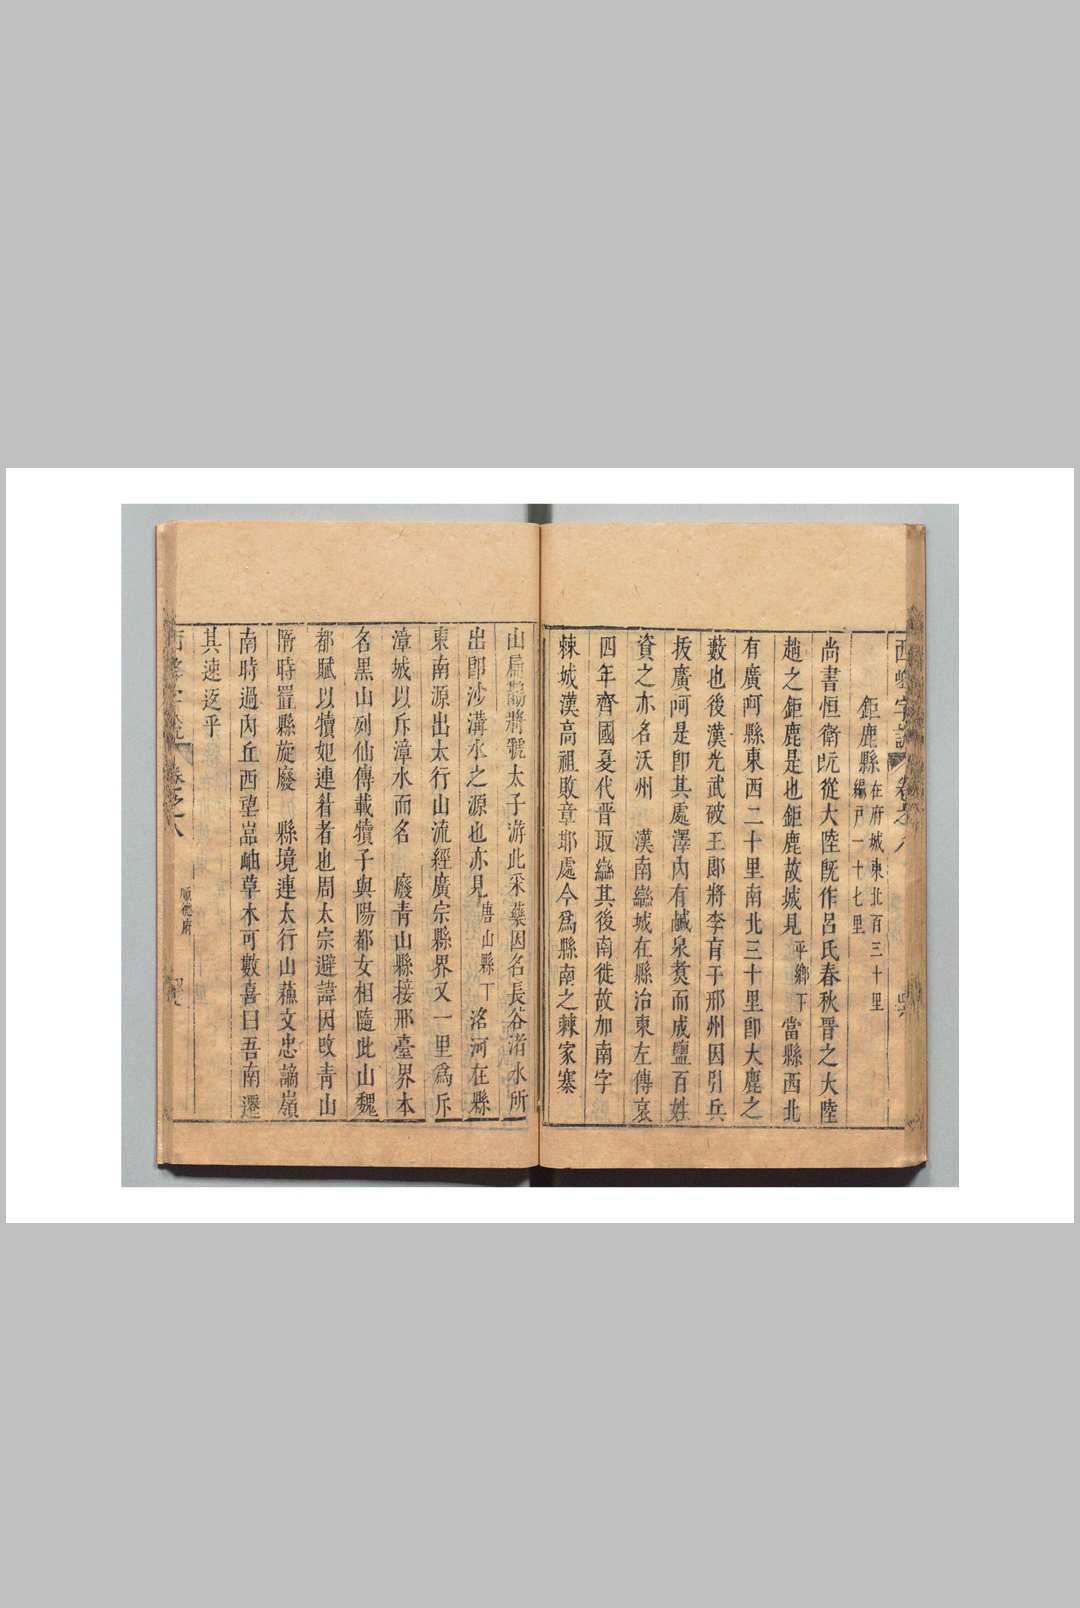 鉅鹿縣在府城東北百三十里編戸一十七里
尚書恒衛旣從大陸旣作呂氏春秋晋之大陸
趙之鉅鹿是也鉅鹿故城見平鄉下當縣西北
有廣阿縣東西二十里南北三十里卽大鹿之
藪也後漢光武破王郎將李育于邢州因引兵
拔廣阿是卽其處澤內有鹹泉煑而成鹽百姓
資之亦名沃州 漢南䜌城在縣治東左傳哀
四年齊國夏代晋取䜌其後南徙故加南字
棘城漢高祖敗章邯處今爲縣南之棘家寨
山扁鵲將虢太子游此采藥因名長谷渚水所
出卽沙溝水之源也亦見唐山縣下 洺河在縣
東南源出太行山流經廣宗縣界又一里爲斥
漳城以斥漳水而名 廢青山縣接邢臺界本
名黑山列仙傳載犢子與陽都女相隨此山魏
都賦以犢妃連眷者也周太宗避諱因改青山
隋時置縣旋廢 縣境連太行山蘇文忠謫嶺
南時過內丘西望嵓岫草木可數喜曰吾南遷
其速返乎
卷之八
順德府